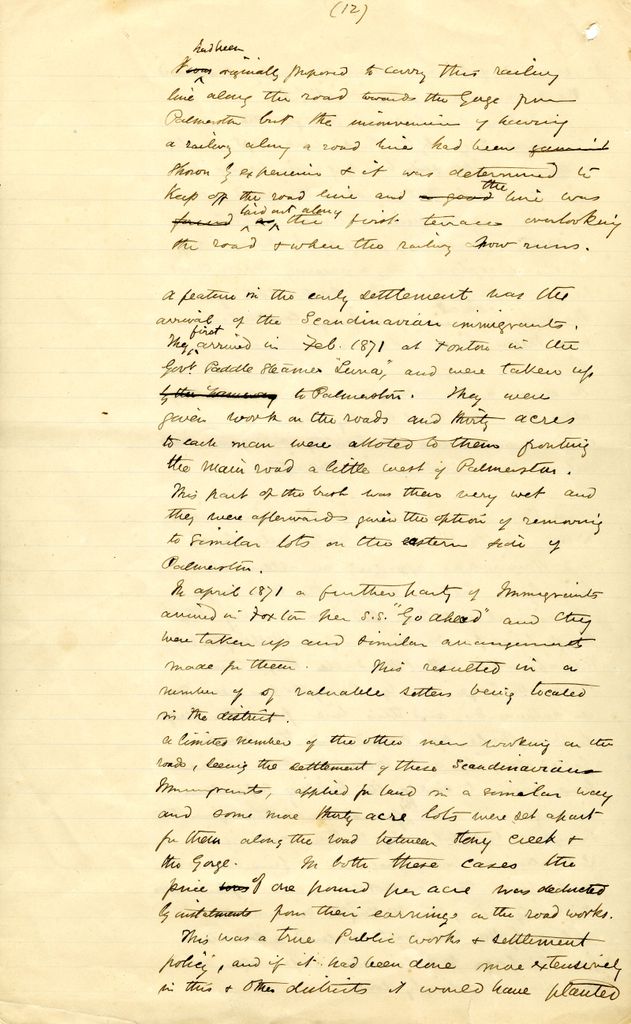 (12)
had been
It was originally proposed to carry this railway
line along the road towards the Gorge from
Palmerston but the inconvenience of having
a railway along a road line had been
shown by experience & it was determined to
keep off the road line and a good the line was
found laid out along the first terrace overlooking
the road & where the railway now runs.
A feature in the early settlement was the
arrival of the Scandinavian immigrants.
They first arrived in Feb. 1871 at Foxton in the
Govt Paddle Steamer "Luna", and were taken up
by the tramway to Palmerston. They were
given work on the roads and thirty acres
to each man were alloted to them fronting
the main road a little west of Palmerston.
This part of the bush was then very wet and
they were afterwards given the option of removing
to similar lots on the eastern side of
Palmerston.
In April 1871 a further party of Immigrants
arrived in Foxton per S.S. "Go ahead" and they
were taken up and similar arrangements
made for them. This resulted in a
number of of valuable settlers being located
in the district.
A limited number of the other men working on the
roads, seeing the settlement of these Scandinavian
Immigrants, applied for land in a similar way
and some more thirty acre lots were set apart
for them along the road between Stony Creek &
the Gorge. In both these cases the
price of one pound per acre was deducted
by instalments from their earnings on the road works.
This was a true Public works & settlement
policy, and if it had been done more extensively
in this & other districts it would have planted